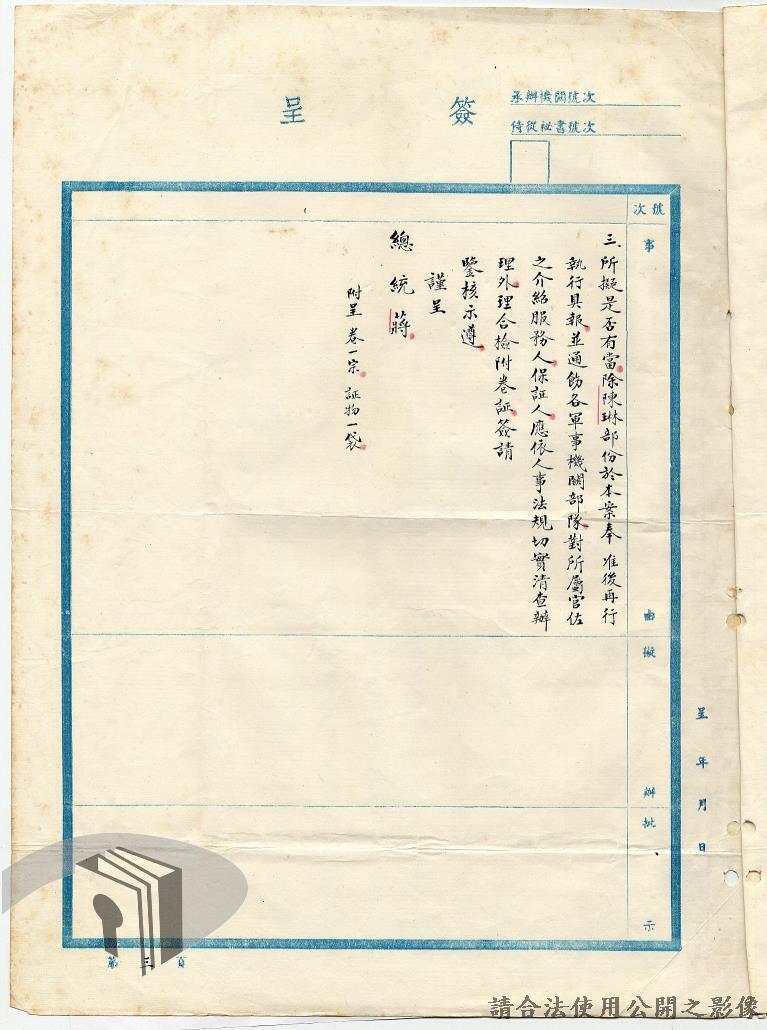 簽呈
承辦機關號次
侍從秘書號次
號次
事由
擬辦
批示
三、所擬是否有當除陳琳部份於本案奉 准後再行
執行具報並通飭各軍事機關部隊對所屬官佐
之介紹服務人保証人應依人事法規切實清查辦
理外理合檢附卷証簽請
鑒核示遵
謹呈
總統蔣
附呈 卷一宗 証物一袋
呈 年 月 日
第三頁
請合法使用公開之影像